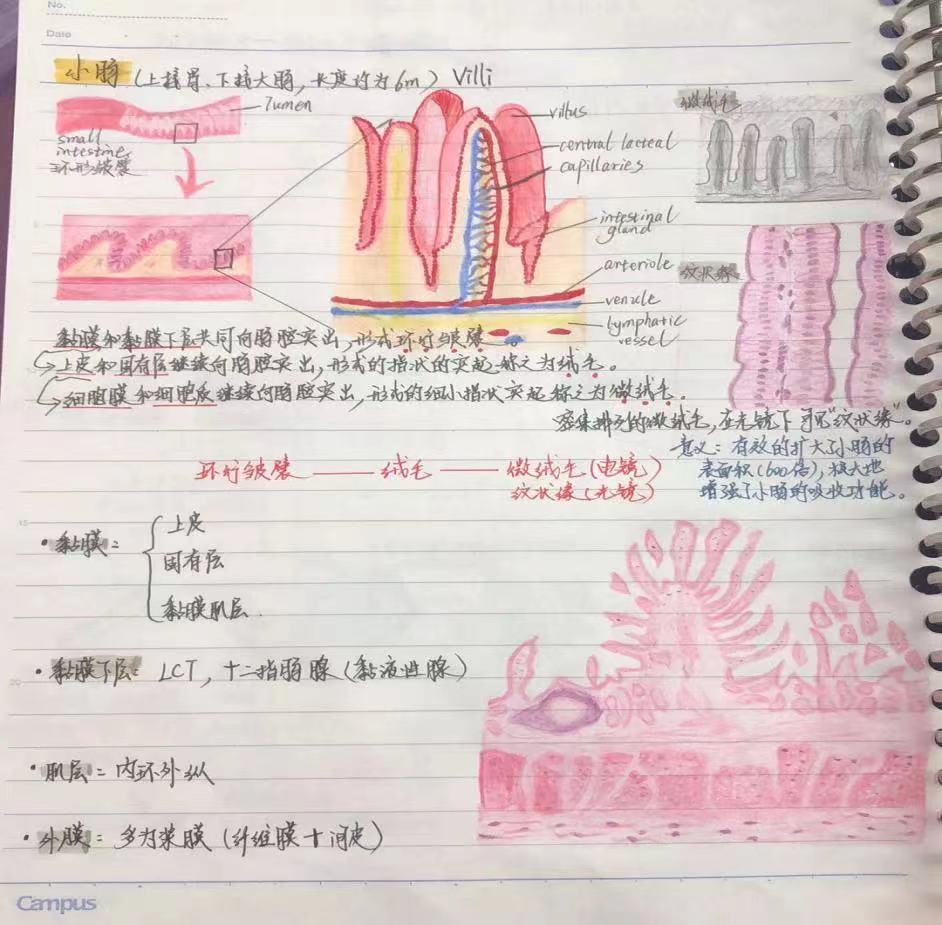 No.
Date
小肠 (上接胃、下接大肠, 长度约为6m) Villi
lumen
small
intestine
环形皱襞
villus
central lacteal
capillaries
intestinal
gland
arteriole
venule
lymphatic
vessel
微绒毛
纹状缘
黏膜和黏膜下层共同向肠腔突出,形成环行皱襞
上皮和固有层继续向肠腔突出,形成的指状的突起称之为绒毛。
细胞膜和细胞质继续向肠腔突出,形成的细小指状突起称之为微绒毛。
密集排列的微绒毛,在光镜下可见"纹状缘"。
意义:有效的扩大了小肠的
表面积(600倍),极大地
增强了小肠的吸收功能。
环行皱襞 —— 绒毛 —— 微绒毛(电镜)
纹状缘(光镜)
·黏膜:
上皮
固有层
黏膜肌层
·黏膜下层: LCT, 十二指肠腺(黏液性腺)
·肌层:内环外纵
·外膜:多为浆膜(纤维膜+间皮)
Campus